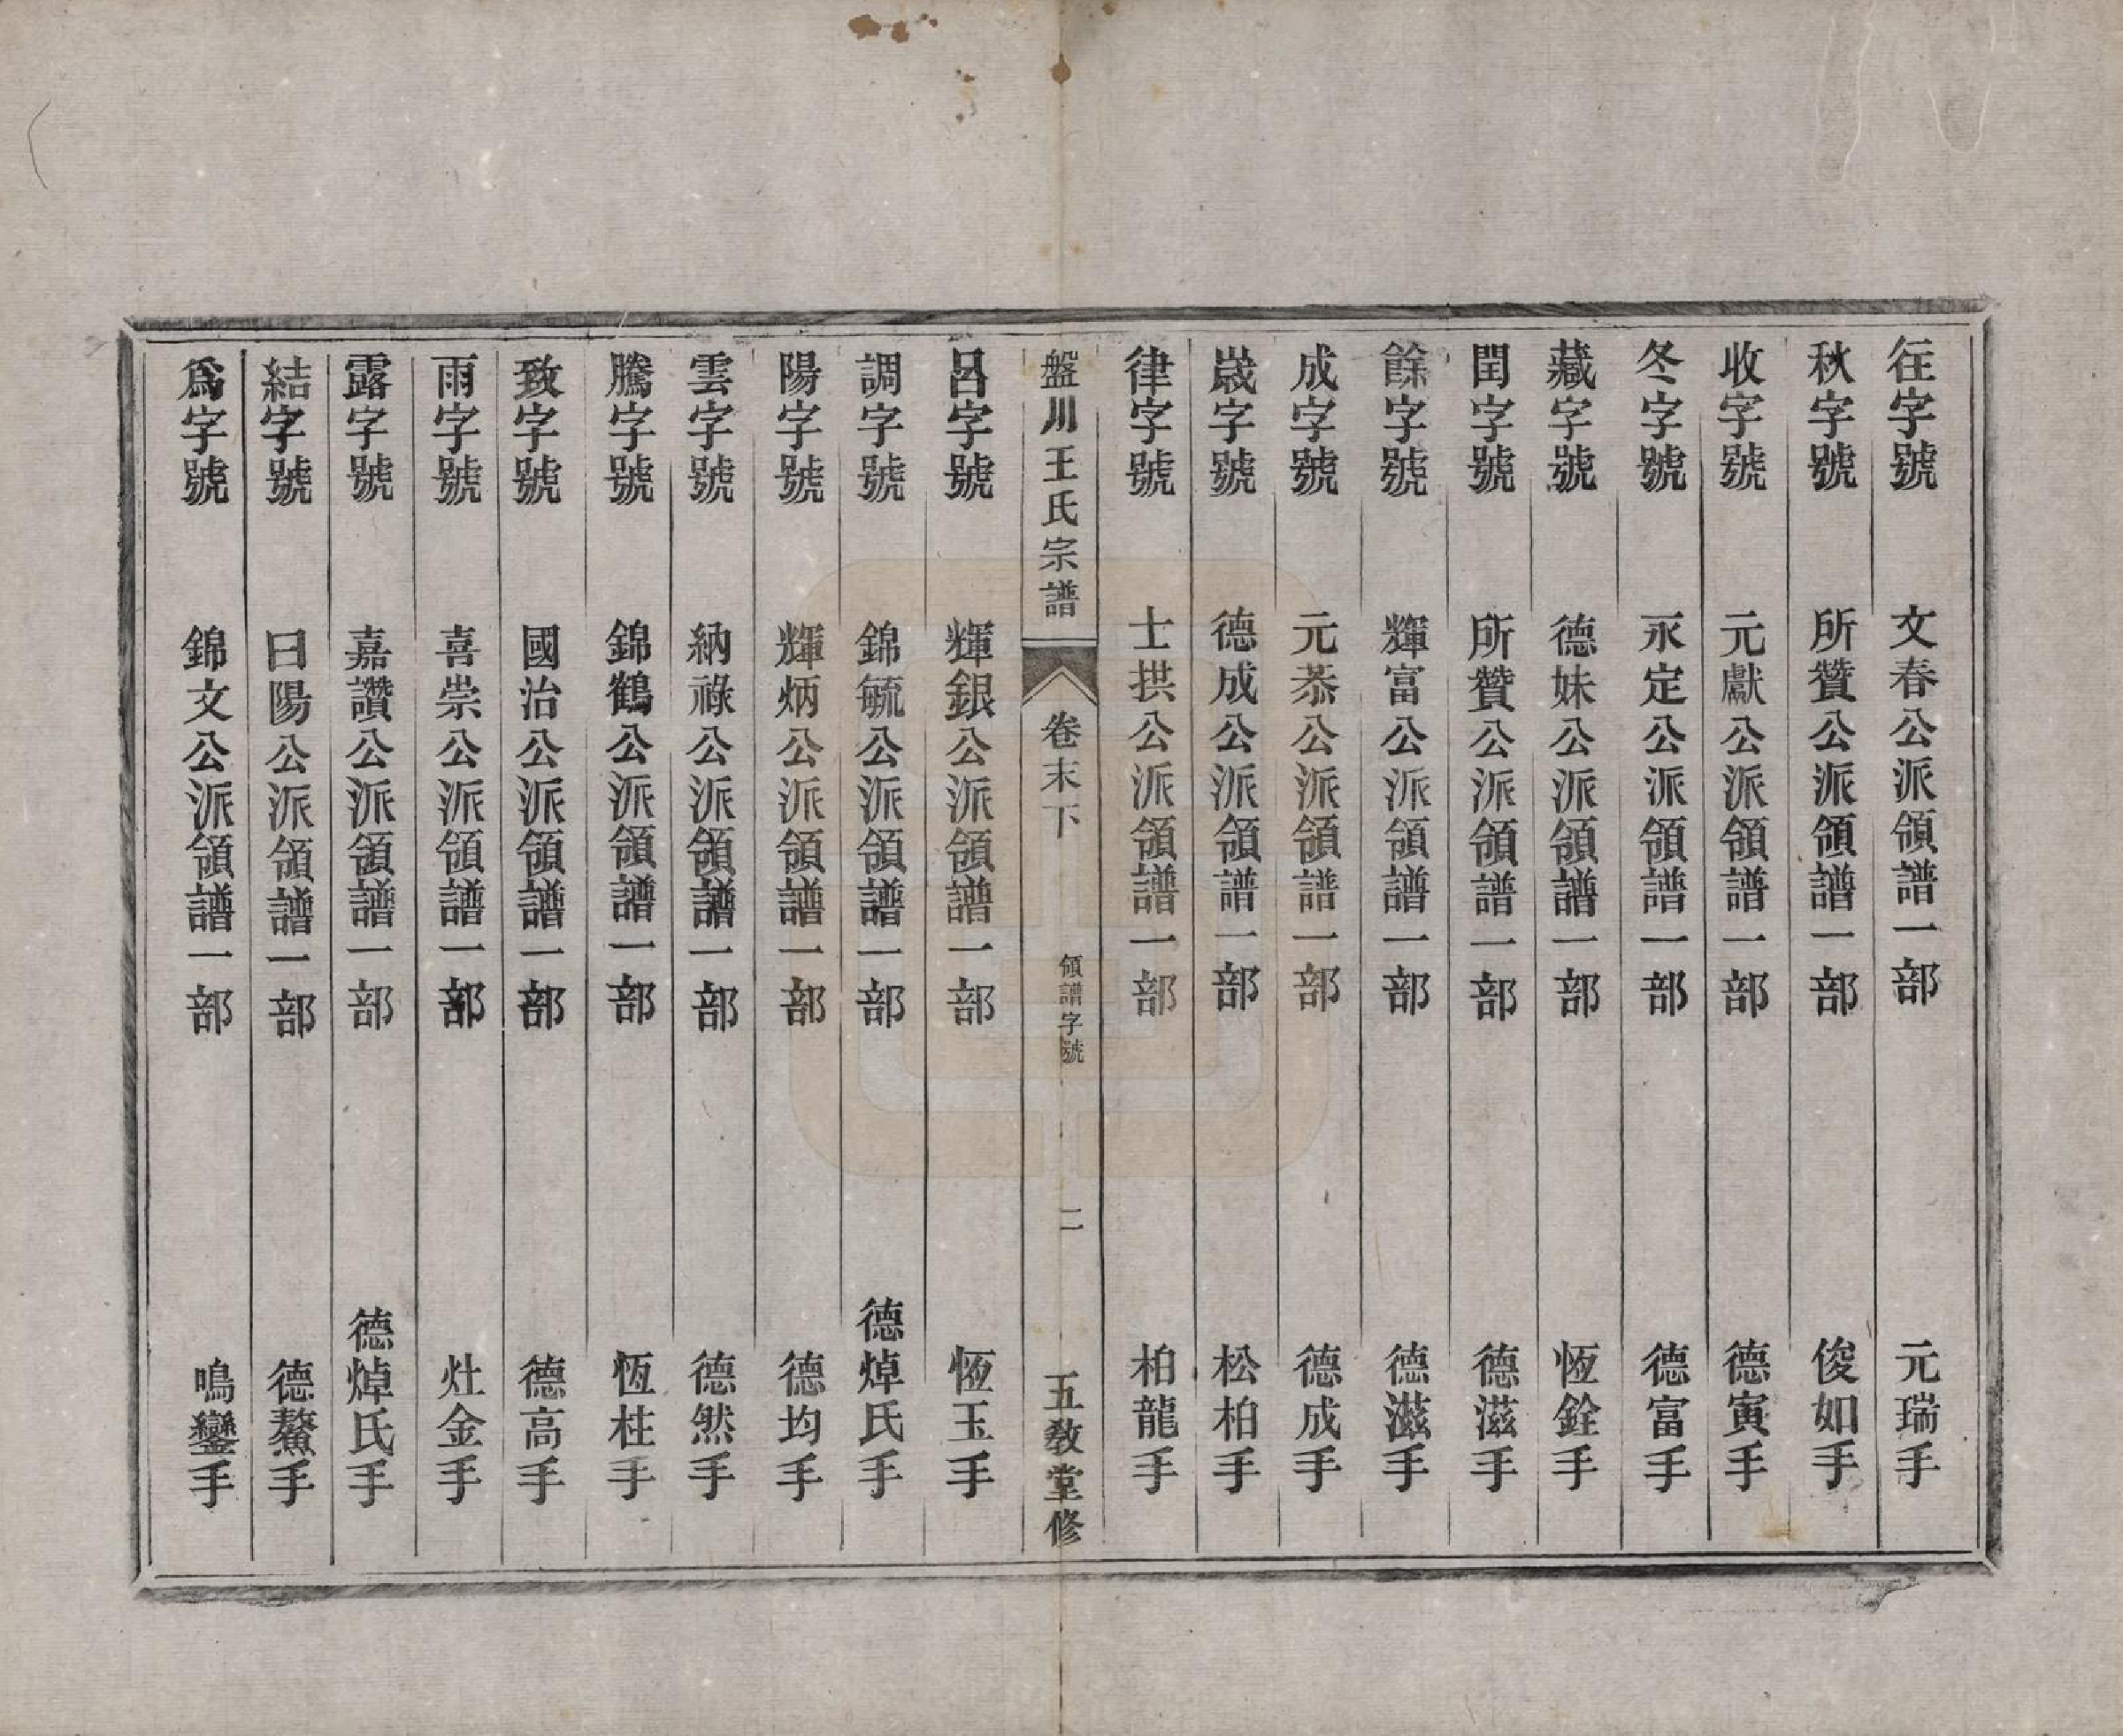 往字號 文春公派領譜一部 元瑞手
秋字號 所贊公派領譜一部 俊如手
收字號 元獻公派領譜一部 德寅手
冬字號 永定公派領譜一部 德富手
藏字號 德妹公派領譜一部 恆銓手
閏字號 所贊公派領譜一部 德滋手
餘字號 輝富公派領譜一部 德滋手
成字號 元恭公派領譜一部 德成手
歲字號 德成公派領譜一部 松柏手
律字號 士拱公派領譜一部 柏龍手
盤川王氏宗譜 卷末下 領譜字號 二 五教堂修
呂字號 輝銀公派領譜一部 恆玉手
調字號 錦毓公派領譜一部 德焯氏手
陽字號 輝炳公派領譜一部 德均手
雲字號 納祿公派領譜一部 德然手
騰字號 錦鶴公派領譜一部 恆柱手
致字號 國治公派領譜一部 德高手
雨字號 喜崇公派領譜一部 灶金手
露字號 嘉讚公派領譜一部 德焯氏手
結字號 曰陽公派領譜一部 德鰲手
爲字號 錦文公派領譜一部 鳴鑾手